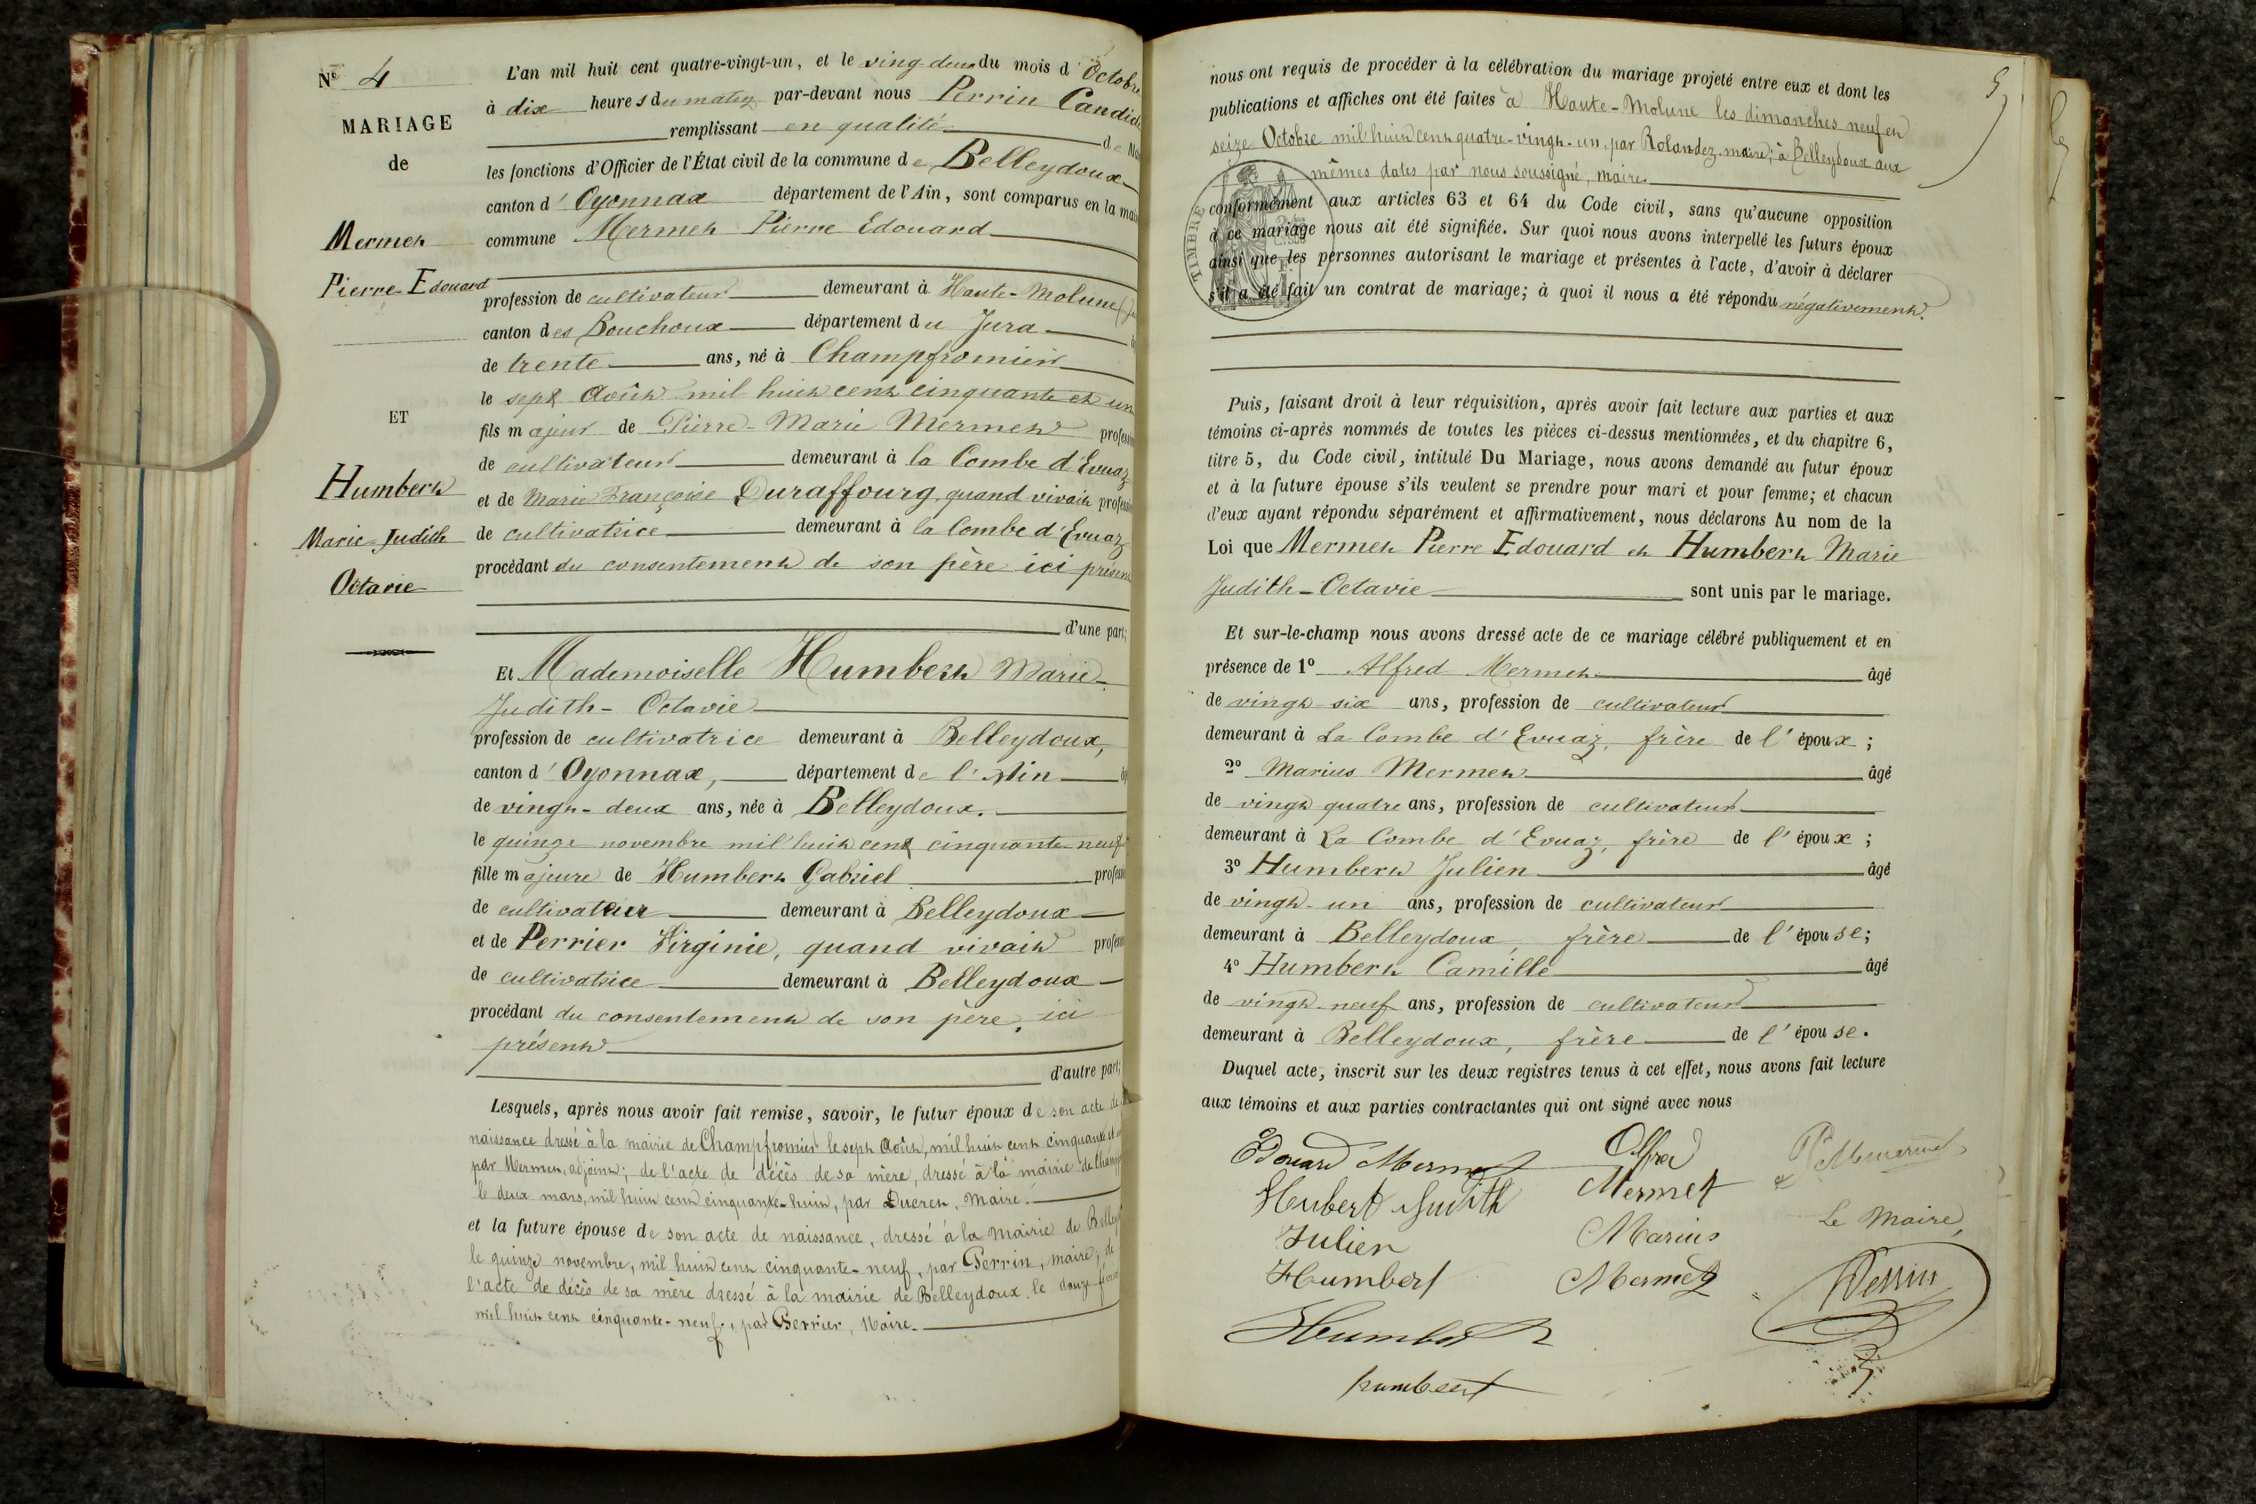 Nº 4
MARIAGE
de
Mermet
Pierre Edouard
ET
Humbert
Marie Judith
Octavie
L'an mil huit cent quatre-vingt-un, et le vingt-deux du mois d'Octobre
à dix heures du matin par-devant nous Perrin Candide
remplissant en qualité de
les fonctions d'Officier de l'État civil de la commune de Belleydoux
canton d'Oyonnax département de l'Ain, sont comparus en la
commune Mermet Pierre Edouard
profession de cultivateur demeurant à Haute-Molune
canton des Bouchoux département du Jura
de trente ans, né à Champfromier
le sept Août mil huit cent cinquante et un
fils majeur de Pierre-Marie Mermet
de cultivateur demeurant à la Combe d'Evuaz
et de Marie Françoise Duraffourg, quand vivait
de cultivatrice demeurant à la Combe d'Evuaz
procédant du consentement de son père ici présent
d'une part;
Et Mademoiselle Humbert Marie-
Judith-Octavie
profession de cultivatrice demeurant à Belleydoux,
canton d'Oyonnax, département de l'Ain
de vingt-deux ans, née à Belleydoux.
le quinze novembre mil huit cent cinquante neuf
fille majeure de Humbert Gabriel
de cultivateur demeurant à Belleydoux
et de Perrier Virginie, quand vivait
de cultivatrice demeurant à Belleydoux
procédant du consentement de son père, ici
présent
d'autre part;
Lesquels, après nous avoir fait remise, savoir, le futur époux de son acte de
naissance dressé à la mairie de Champfromier le sept Août, mil huit cent cinquante et
par Mermet, adjoint; de l'acte de décès de sa mère, dressé à la mairie de
le deux mars, mil huit cent cinquante-huit, par Ducret, Maire.
et la future épouse de son acte de naissance, dressé à la Mairie de
le quinze novembre, mil huit cent cinquante-neuf, par Perrin, maire; de
l'acte de décès de sa mère dressé à la mairie de Belleydoux le douze
mil huit cent cinquante-neuf, par Perrier, Maire.
5
nous ont requis de procéder à la célébration du mariage projeté entre eux et dont les
publications et affiches ont été faites à Haute-Molune les dimanches neuf et
seize Octobre mil huit cent quatre-vingt-un, par Rolandez, maire; à Belleydoux aux
mêmes dates par nous soussigné, maire.
TIMBRE
conformément aux articles 63 et 64 du Code civil, sans qu'aucune opposition
à ce mariage nous ait été signifiée. Sur quoi nous avons interpellé les futurs époux
ainsi que les personnes autorisant le mariage et présentes à l'acte, d'avoir à déclarer
s'il a été fait un contrat de mariage; à quoi il nous a été répondu négativement.
Puis, faisant droit à leur réquisition, après avoir fait lecture aux parties et aux
témoins ci-après nommés de toutes les pièces ci-dessus mentionnées, et du chapitre 6,
titre 5, du Code civil, intitulé Du Mariage, nous avons demandé au futur époux
et à la future épouse s'ils veulent se prendre pour mari et pour femme; et chacun
d'eux ayant répondu séparément et affirmativement, nous déclarons Au nom de la
Loi que Mermet Pierre Edouard et Humbert Marie
Judith-Octavie sont unis par le mariage.
Et sur-le-champ nous avons dressé acte de ce mariage célébré publiquement et en
présence de 1º Alfred Mermet âgé
de vingt-six ans, profession de cultivateur
demeurant à La Combe d'Evuaz, frère de l'époux;
2º Marius Mermet âgé
de vingt quatre ans, profession de cultivateur
demeurant à La Combe d'Evuaz, frère de l'époux;
3º Humbert Julien âgé
de vingt-un ans, profession de cultivateur
demeurant à Belleydoux, frère de l'épouse;
4º Humbert Camille âgé
de vingt-neuf ans, profession de cultivateur
demeurant à Belleydoux, frère de l'épouse.
Duquel acte, inscrit sur les deux registres tenus à cet effet, nous avons fait lecture
aux témoins et aux parties contractantes qui ont signé avec nous
Edouard Mermet
Hubert Judith
Julien
Humbert
Humbert
humbert
Alfred
Mermet
Marius
Mermet
Le Maire,
Perrin